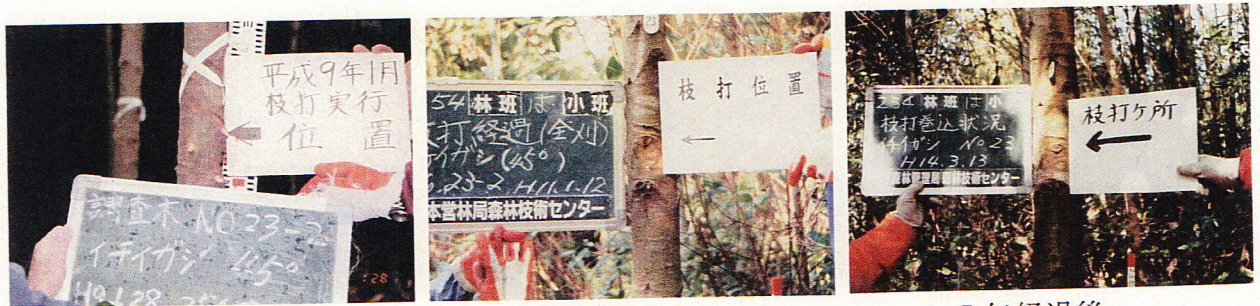 平成9年1月
枝打実行
位置
←
調査木 NO 23-2
イチイガシ 45°
H9.1.28
23
枝打位置
←
54 林班 は 小班
枝打経過(全刈)
イチイガシ(45°)
No.23-2 H11.1.12
本営林局森林技術センター
枝打ケ所
←
254 林班 は 小
枝打巻込状況
イチイガシ No 23
H14.3.13
森林技術センター